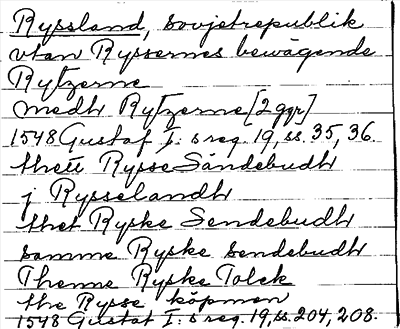 Ryssland, sovjetrepublik
vtan Ryssernes bewägende
Rytzerne
medh Rytzerne [2 ggr]
1548 Gustaf I:s reg. 19, ss. 35, 36.
thett Rysse Sändebudh
j Rysselandh
thet Ryske Sendebudh
samme Ryske sendebudh
Thenne Ryske Tolck
the Rysse köpmen
1548 Gustaf I:s reg. 19, ss. 204, 208.